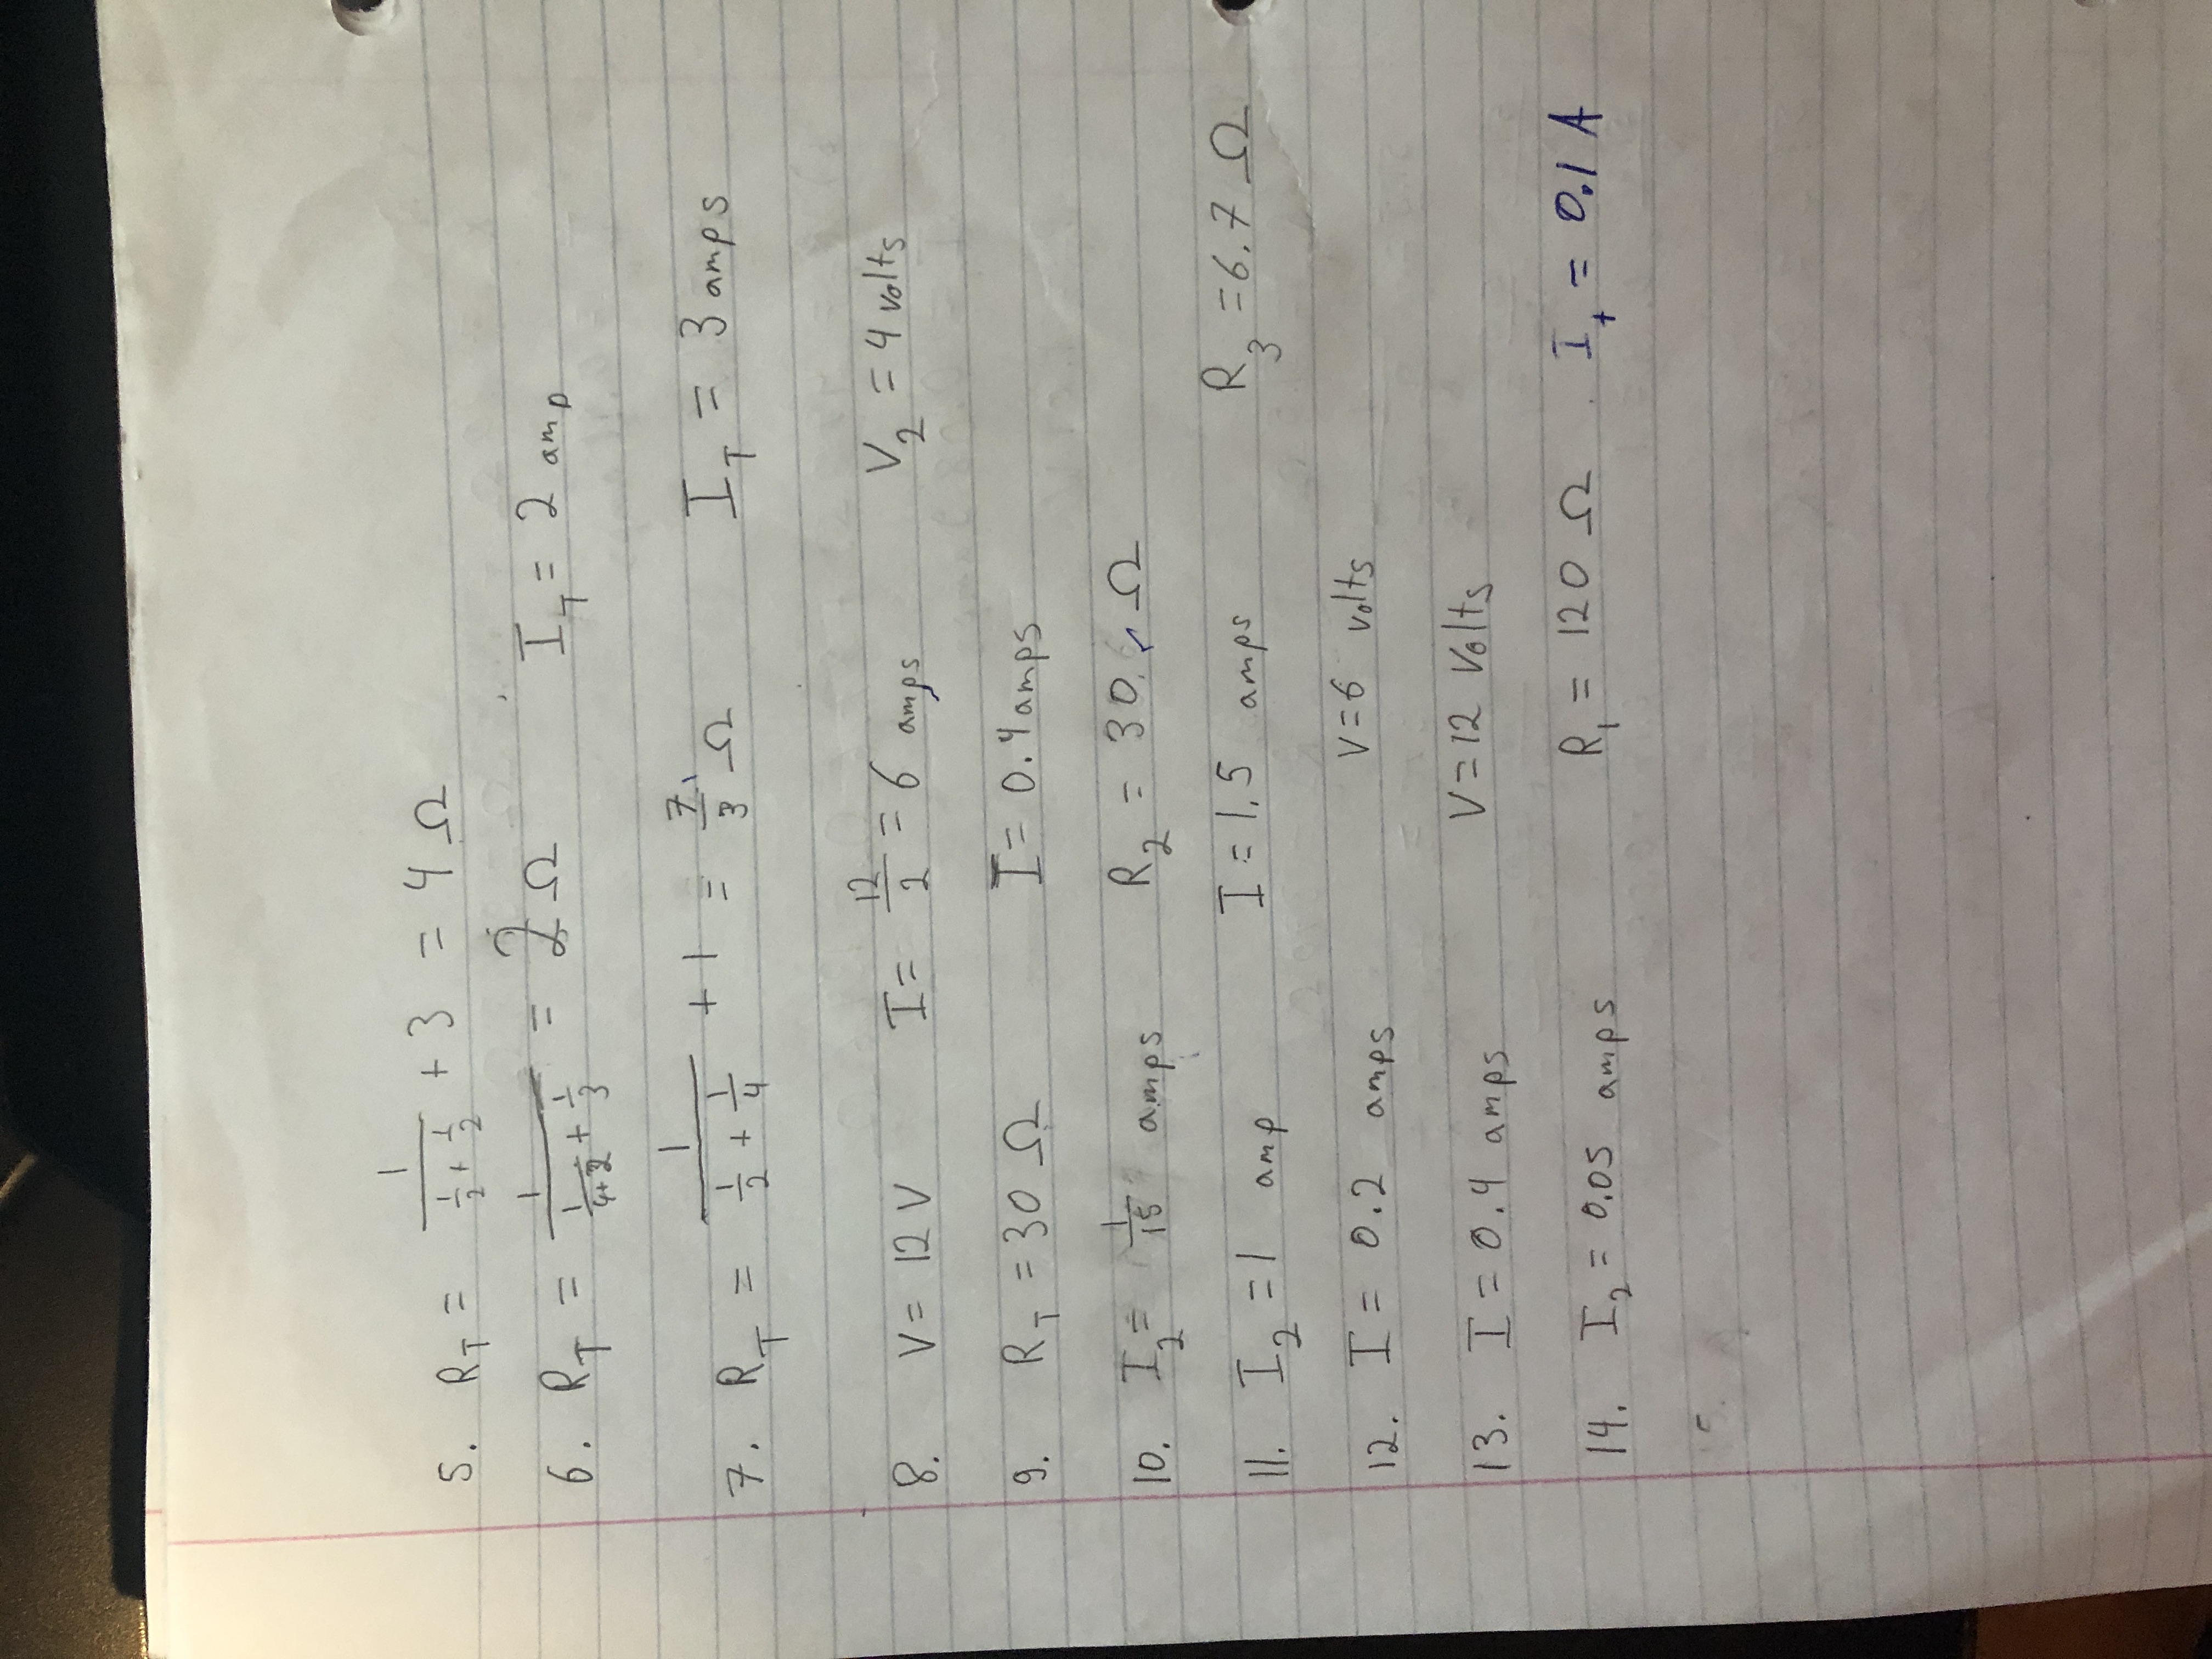 5. R_T = 1/(1/2 + 1/2) + 3 = 4 Ω
6. R_T = 1/(1/(4+2) + 1/3) = 2 Ω I_T = 2 amp
7. R_T = 1/(1/2 + 1/4) + 1 = 7/3 Ω I_T = 3 amps
8. V = 12 V I = 12/2 = 6 amps V_2 = 4 volts
9. R_T = 30 Ω I = 0.4 amps
10. I_2 = 1/15 amps R_2 = 30. Ω
11. I_2 = 1 amp I = 1.5 amps R_3 = 6.7 Ω
12. I = 0.2 amps V = 6 volts
13. I = 0.4 amps V = 12 Volts
14. I_2 = 0.05 amps R_1 = 120 Ω . I_t = 0.1 A